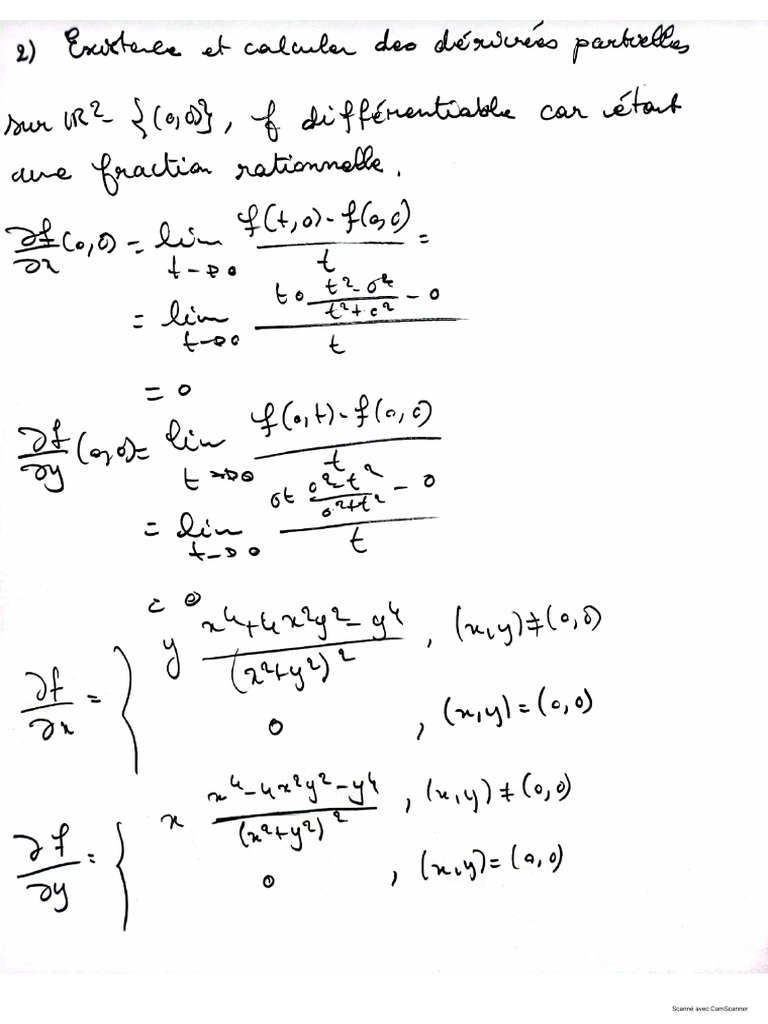 2) Existence et calculer des dérivées partielles
sur IR² - {(0,0)}, f différentiable car étant
une fraction rationnelle.
∂f/∂x (0,0) = lim_{t→0} (f(t,0) - f(0,0))/t =
= lim_{t→0} (t0 (t²-0²)/(t²+0²) - 0)/t
= 0
∂f/∂y (0,0) = lim_{t→0} (f(0,t) - f(0,0))/t
= lim_{t→0} (0t (0²-t²)/(0²+t²) - 0)/t
= 0
∂f/∂x = { y (x⁴+4x²y²-y⁴)/(x²+y²)², (x,y)≠(0,0)
0, (x,y)=(0,0)
∂f/∂y = { x (x⁴-4x²y²-y⁴)/(x²+y²)², (x,y)≠(0,0)
0, (x,y)=(0,0)
Scanné avec CamScanner